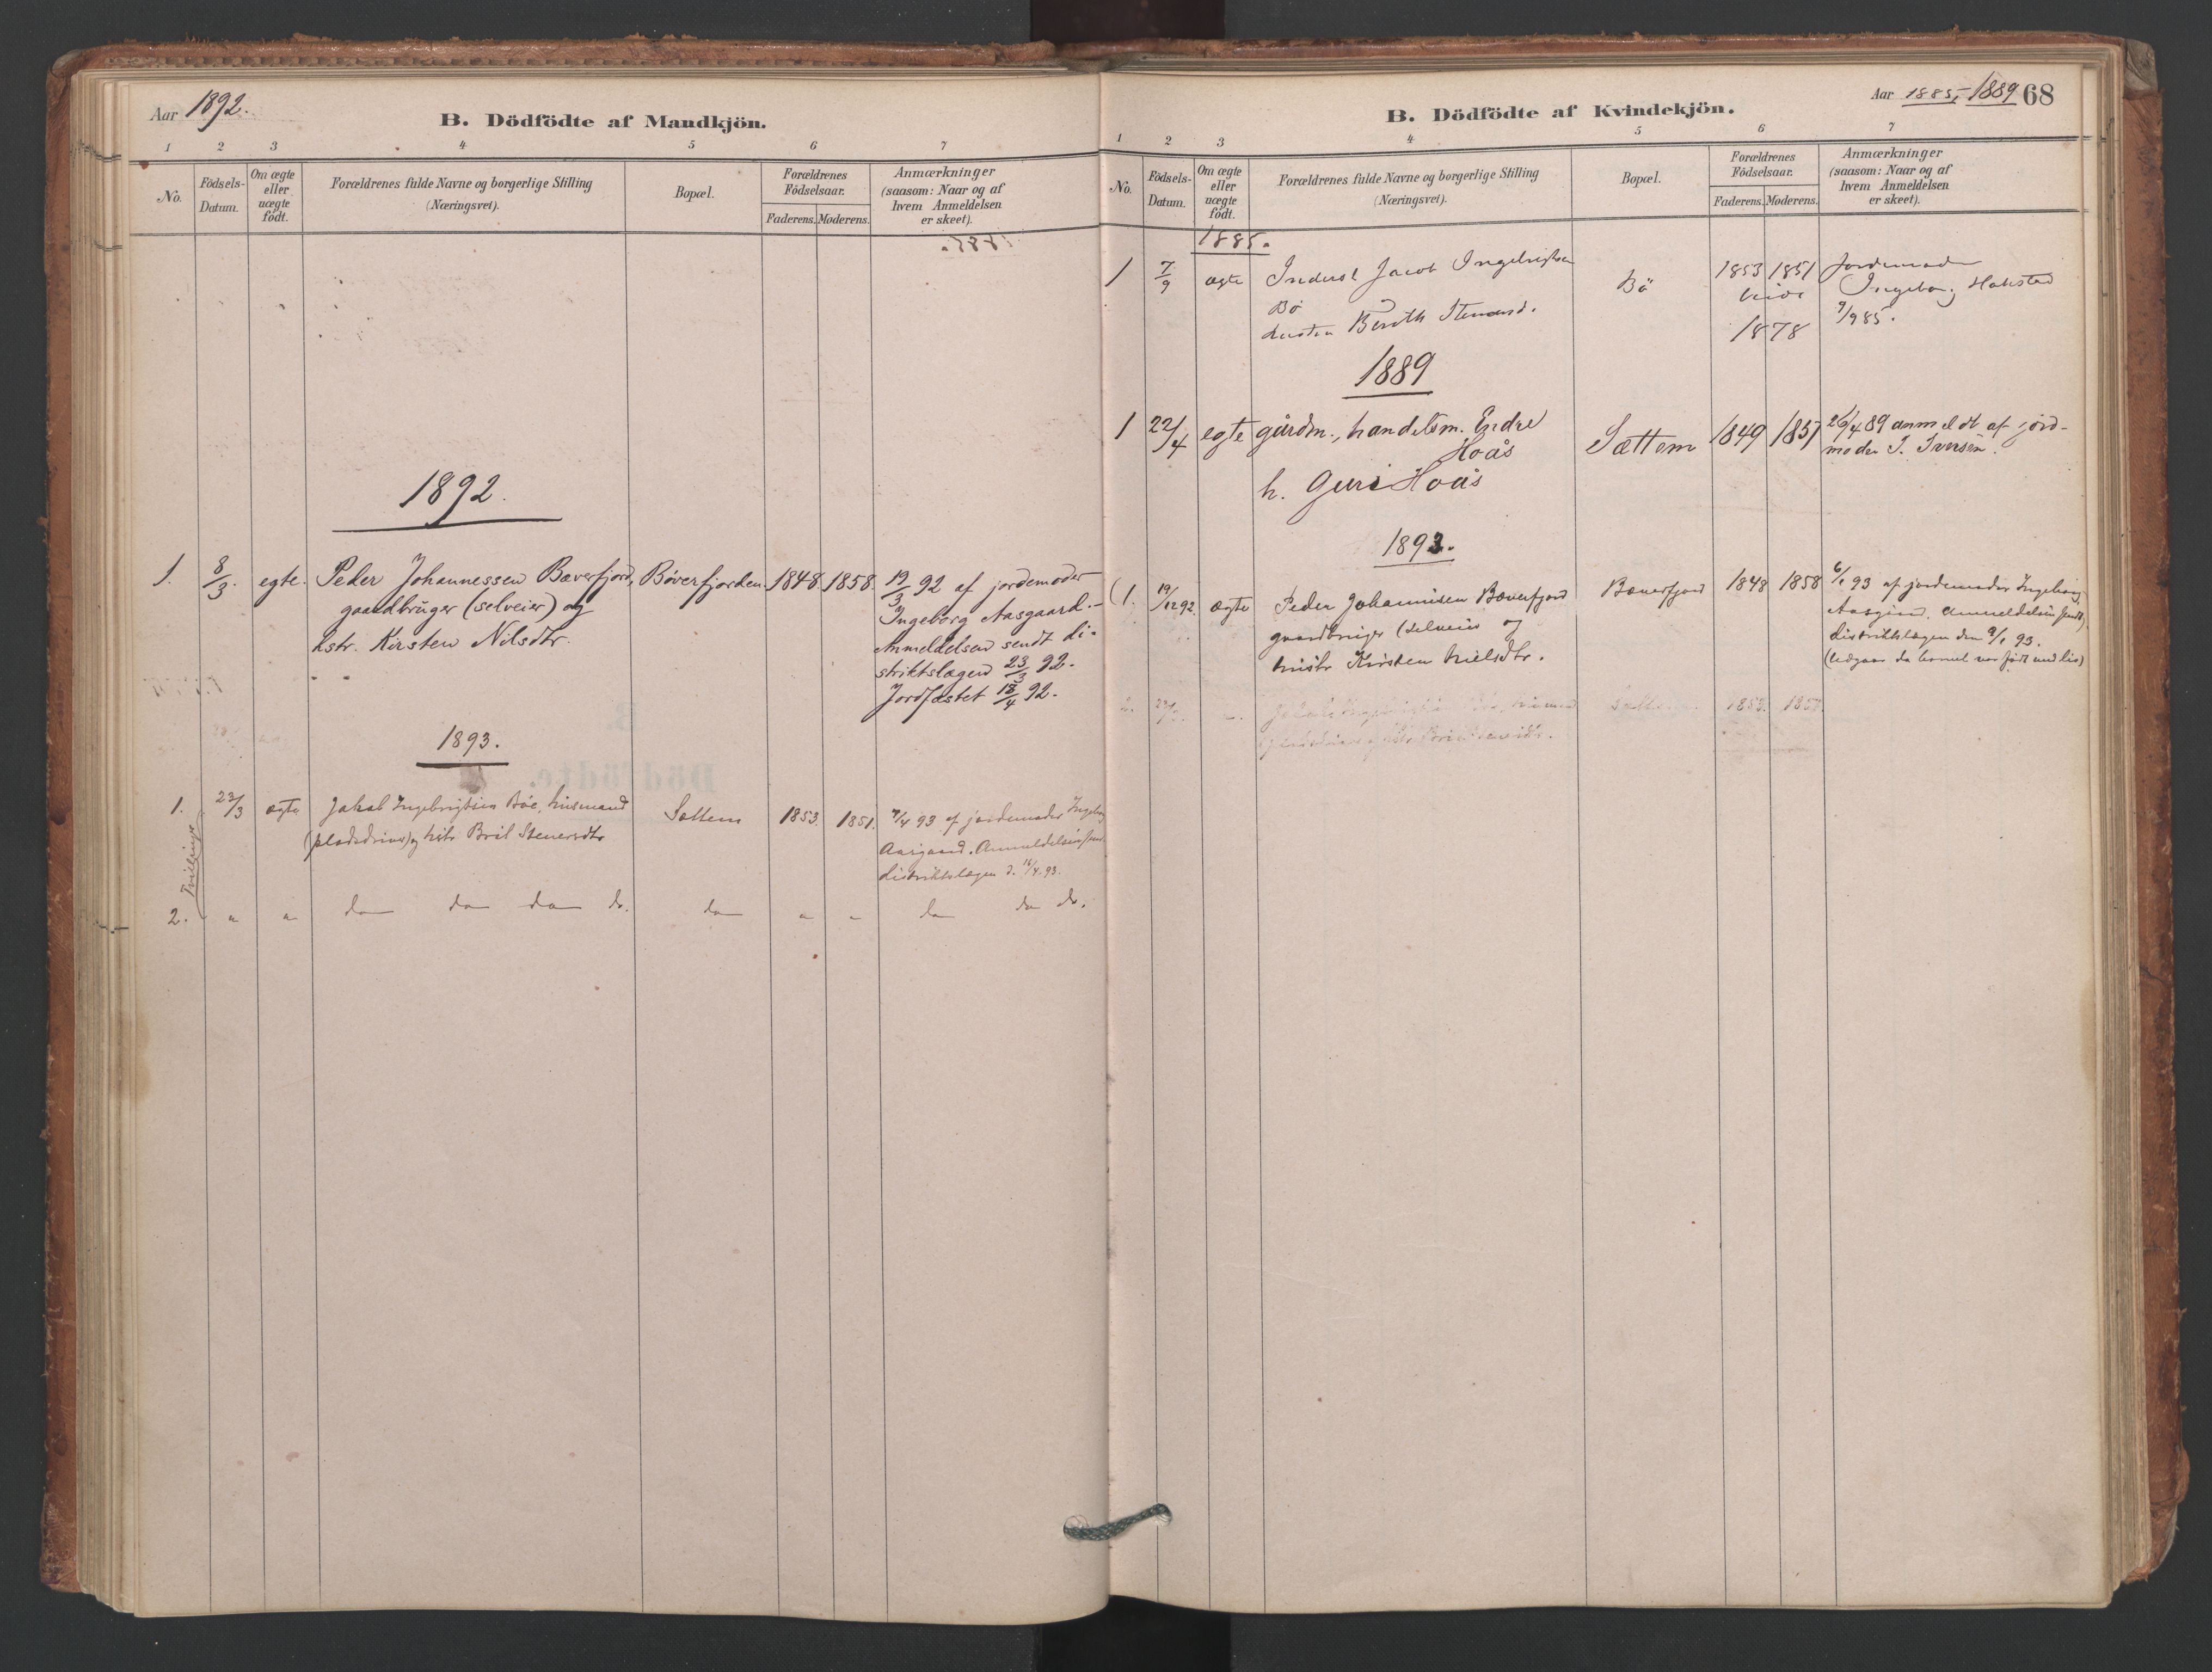 Aar 1892.
B. Dödfödte af Mandkjön.
1 2 3 4 5 6 7
No.
Födsels-Datum.
Om ægte eller uægte født.
Forældrenes fulde Navne og borgerlige Stilling (Næringsvei).
Bopæl.
Forældrenes Födselsaar.
Faderens. Moderens.
Anmærkninger (saasom: Naar og af hvem Anmeldelsen er skeet).
1892.
1. 8/3. egte. Peder Johannessen Bæverfjord, Bøverfjorden. 1848. 1858. 19/3 92 af jordemoder
gaardbruger (selveier) og Ingeborg Aasgaard.-
hstr. Kirsten Nilsdtr. Anmeldelsen sendt di-
striktslægen 23/3 92.
Jordfæstet 18/4 92.
1893.
1. 23/3 ægte Jakob Ingebrigtsen Bøe, husmand Sættem 1853. 1851. 7/4 93 af jordemoder Ingeborg
og hstr. Brit Stenersdtr Aasgaard. Anmeldelsen
distriktslægen d. 16/4. 93.
Tvillinger
2. " " do do do do. do " " do do do.
Aar 1885, 1889 68
B. Dödfödte af Kvindekjön.
1 2 3 4 5 6 7
No.
Födsels-Datum.
Om ægte eller uægte født.
Forældrenes fulde Navne og borgerlige Stilling (Næringsvei).
Bopæl.
Forældrenes Födselsaar.
Faderens. Moderens.
Anmærkninger (saasom: Naar og af hvem Anmeldelsen er skeet).
1885.
1 7/9 ægte Inderst Jacob Ingebrigtsen Bö 1853 1851 Jordemoder
Bö Ingeborg
Berith 1878 9/9 85.
1889
1 22/4 egte gårdm., handelsm. Endre Sættem 1849 1857 26/4 89 anmeldt af jord-
Hoås moder I. Iversen.
h. Guri Hoås
1893.
(1. 19/12 92. ægte Peder Johannesen Bæverfjord Bæverfjord 1848 1858 6/1 93 af jordemoder Ingeborg
gaardbruger (selveier og Aasgaard. Anmeldelsen sendt
hustr Kirsten Nielsdtr. distriktslægen den 9/1 93.
(Udgaar da barnet var født med liv)
2. 1853. Jakob